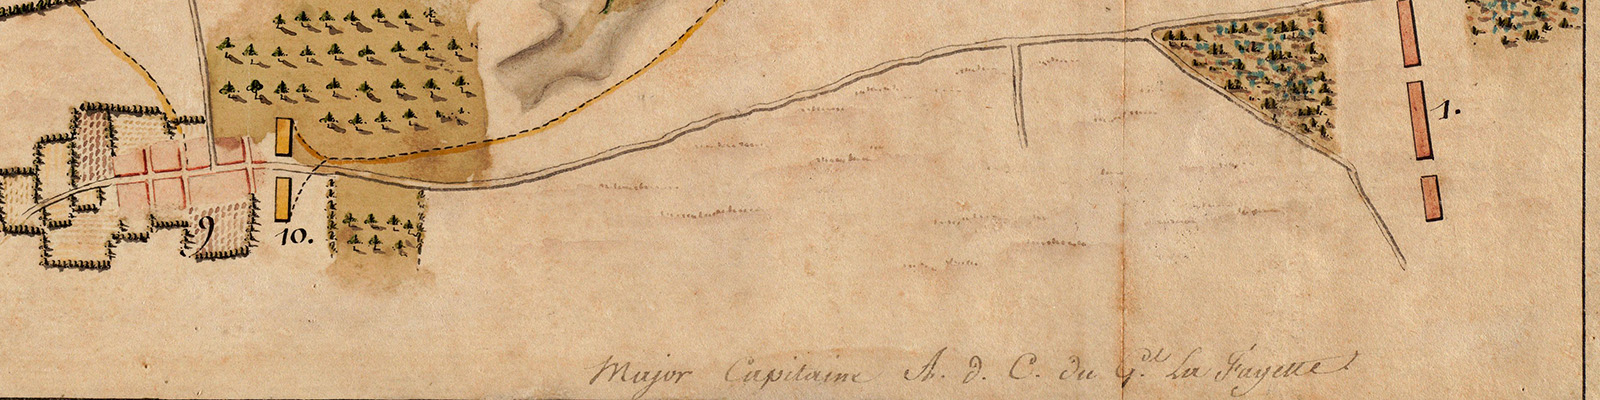 1.
9
10.
Major Capitaine A. d. C. du G.al La Fayette